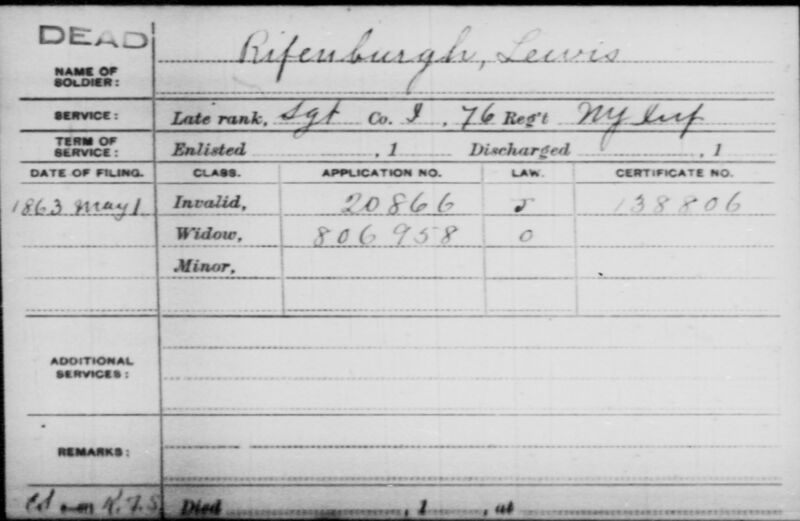 DEAD
NAME OF SOLDIER: Rifenburgh, Lewis
SERVICE: Late rank, Sgt Co. I, 76 Reg't NY Inf
TERM OF SERVICE: Enlisted , 1 Discharged , 1
DATE OF FILING. CLASS. APPLICATION NO. LAW. CERTIFICATE NO.
1863 May 1 Invalid, 20866 138806
Widow, 806958 O
Minor,
ADDITIONAL SERVICES:
REMARKS:
K.T.S. Died , 1 , at